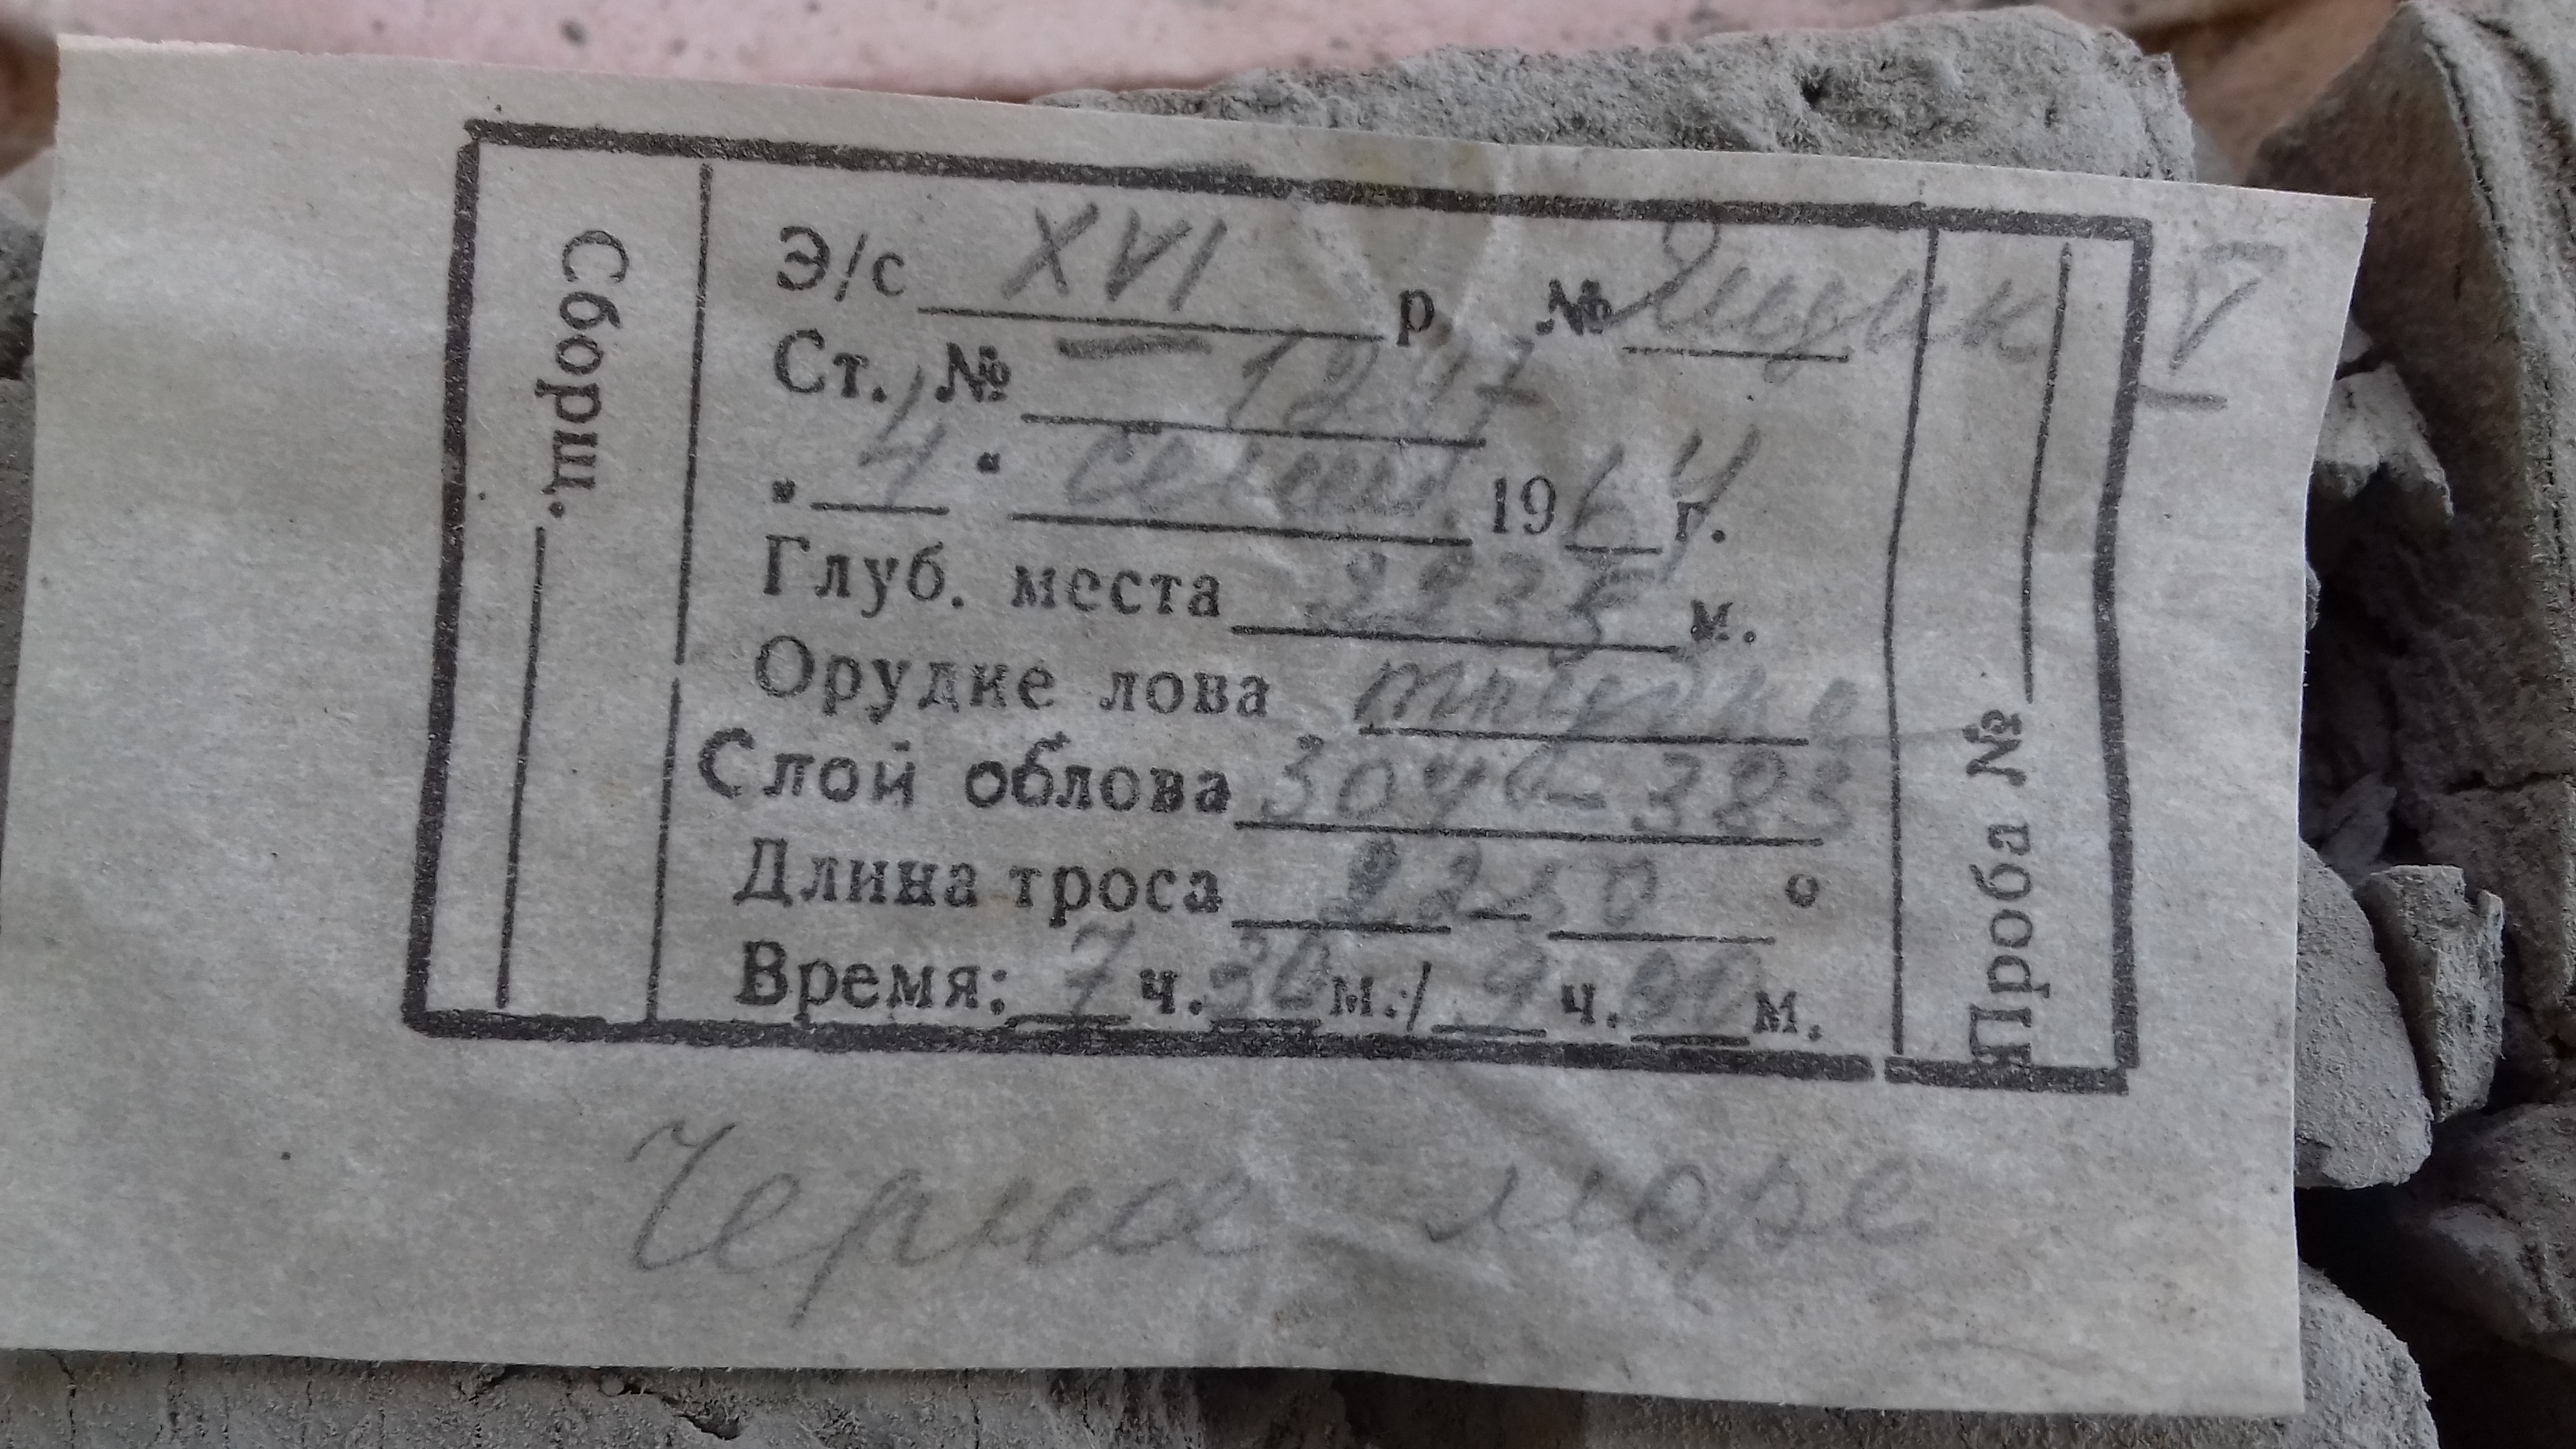 Сборщ.
Э/с XVI р. № Ящик V
Ст. № 1247
"4" сент. 1964 г.
Глуб. места 2235 м.
Орудие лова трубка
Слой облова 304б-383
Длина троса 22 0 °
Время: 7 ч. 30 м./ 9 ч. м.
Проба №
Черное море